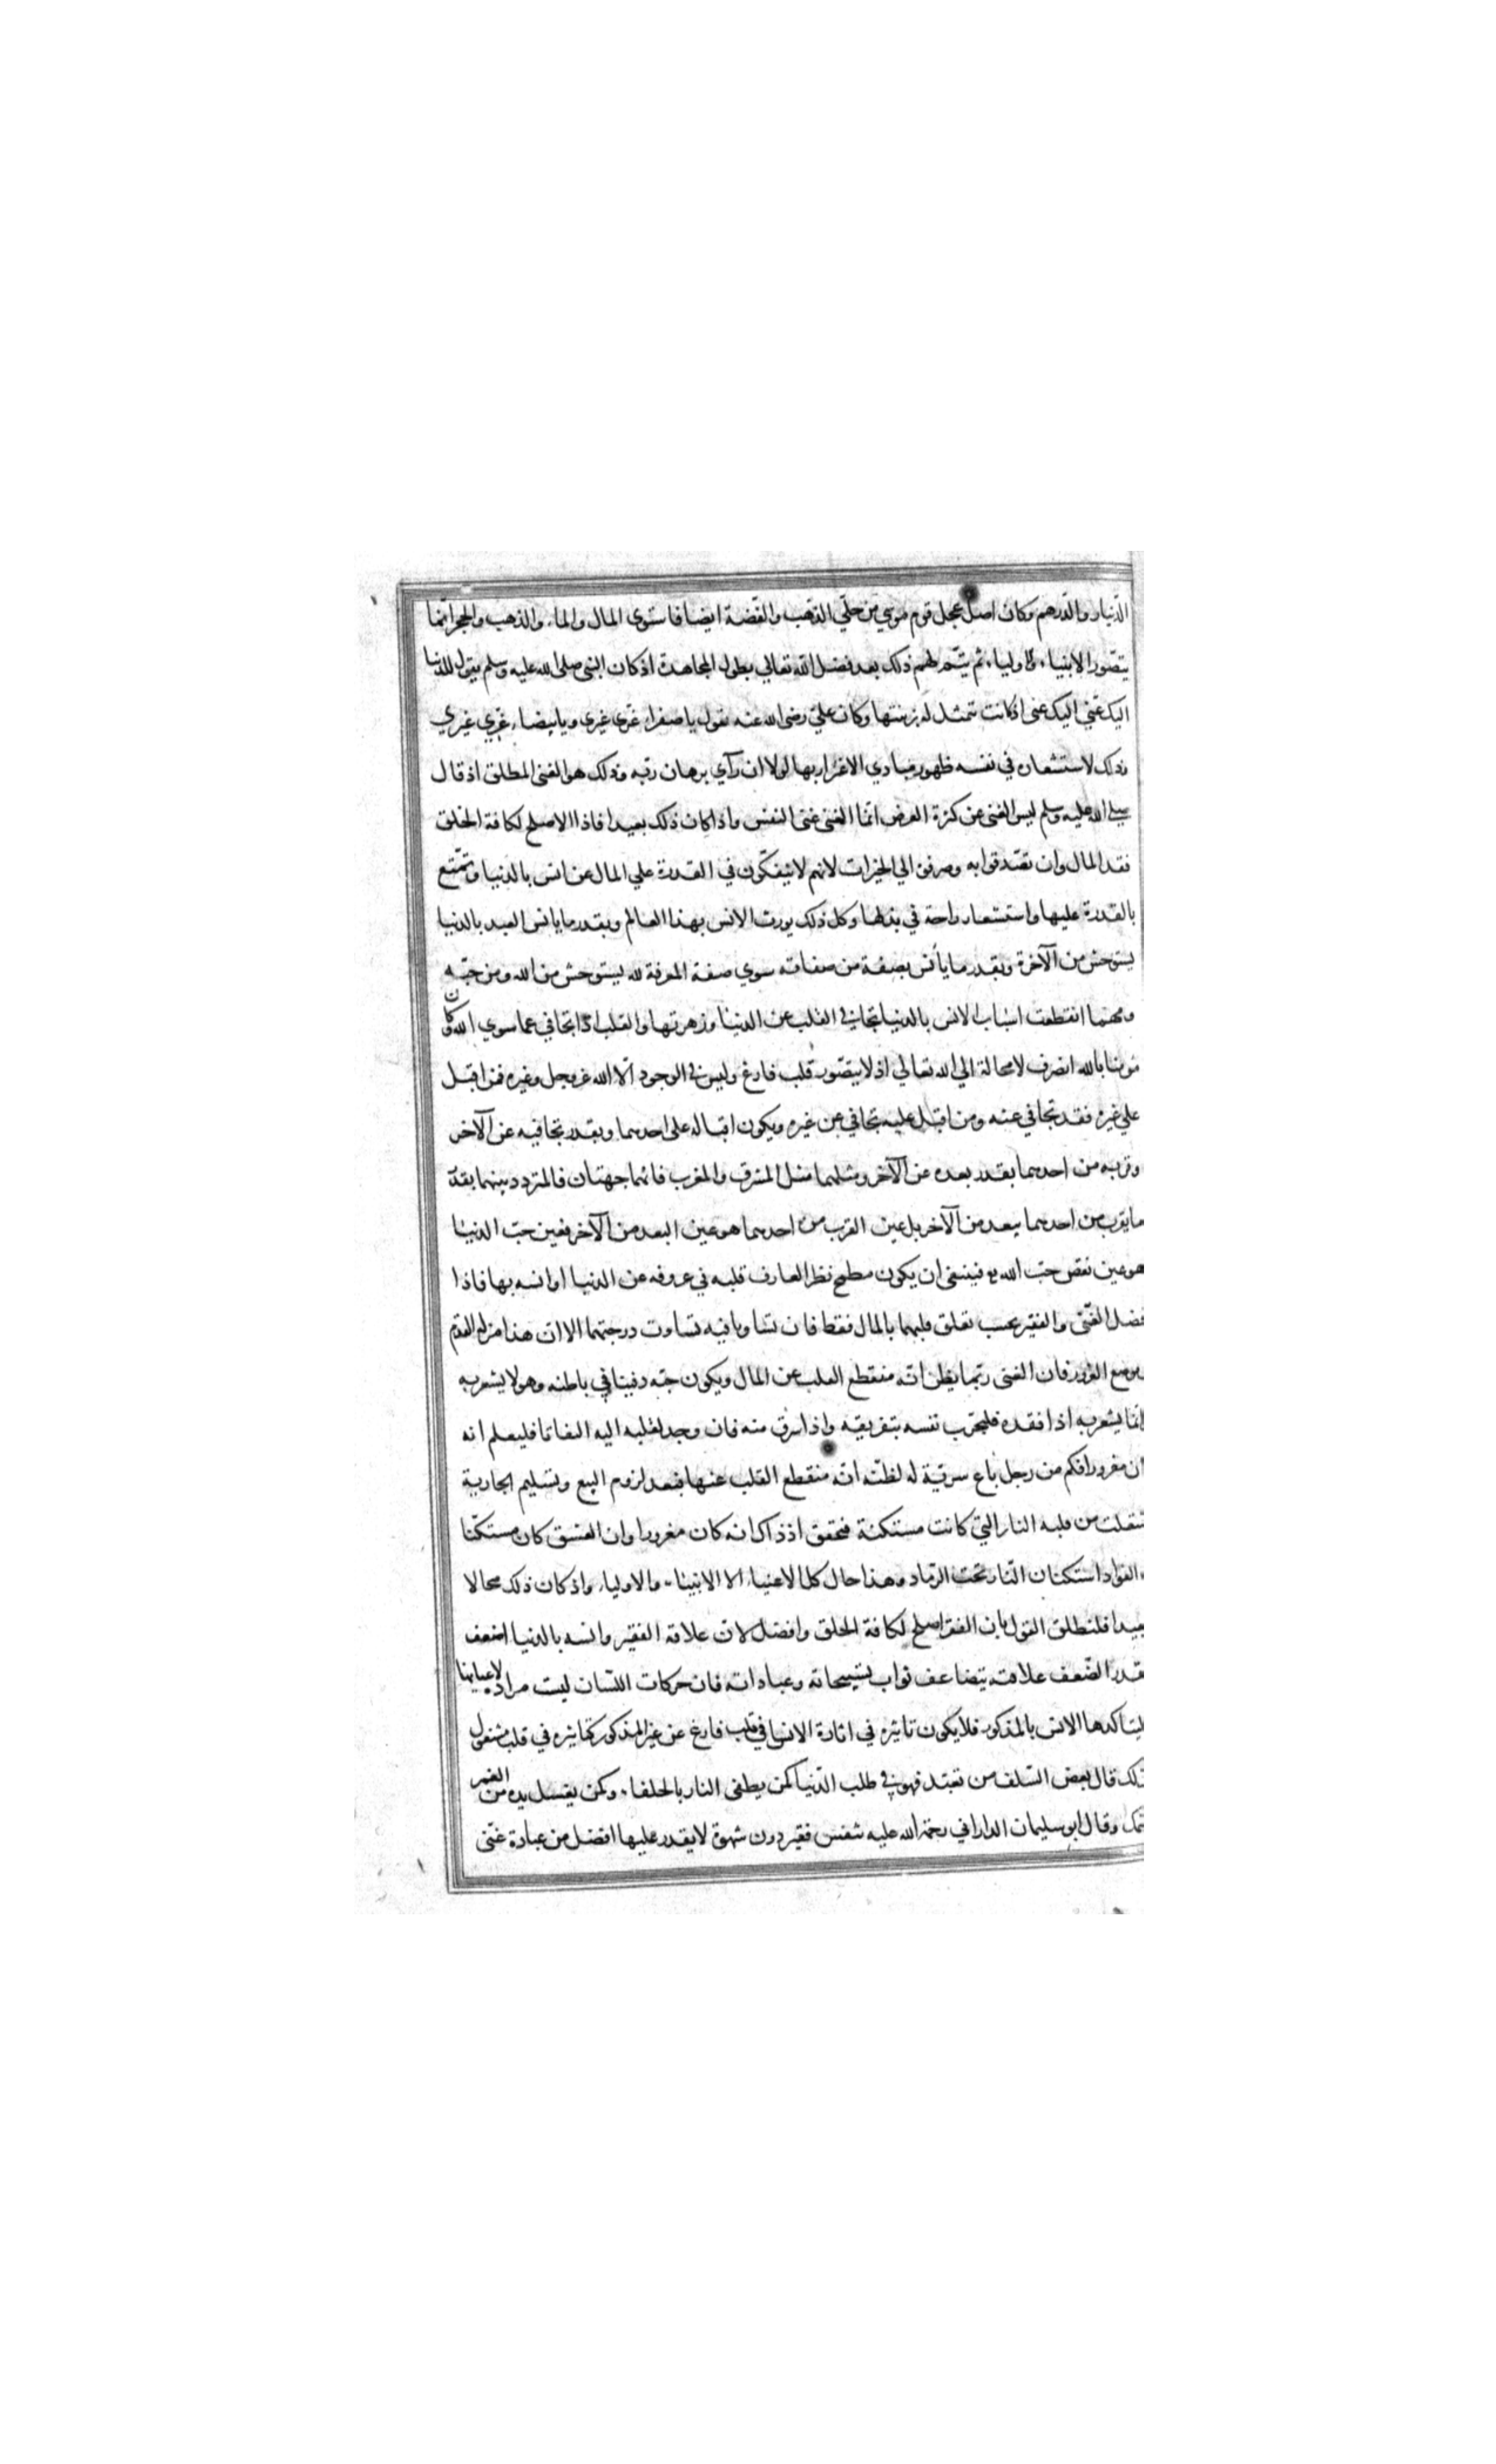 الدّينار والدّرهم وكان اصل عجل قوم موسي من حلّي الذّهب والفّضة ايضا فاستوى المال والماء والذهب والحجر انّما
يتصّور الانبياء والاولياء ثم يتّم لهم ذلك بعد فضل الله تعالي بطول المجاهدة اذ كان النبى صلى الله عليه وسلم يقول للدنيا
اليك عنّي اليك عنى اذ كانت تتمثل له بزينتها وكان علىّ رضى الله عنه يقول يا صفراء غرّى غيرى ويا بيضاء غرّي غيري
وذلك لاستشعاره في نفسه ظهور مبادي الاغترار بها لولا ان رآي برهان ربّه وذلك هو الغنى المطلق اذ قال
صلى الله عليه وسلم ليس الغنى عن كثرة العرض انّما الغنى غنى النفس واذا كان ذلك بعيدا فاذا الاصلح لكافة الخلق
فقد المال وان تصّدقوا به وصرفوه الي الخيرات لانهم لا ينفكّون في القدرة علي المال عن انس بالدنيا وتمّتع
بالقدرة عليها واستشعار راحة في بذلها وكل ذلك يورث الانس بهذا العالم وبقدر ما يانس العبد بالدنيا
يستوحش من الآخرة وبقدر ما يأنس بصفة من صفاته سوي صفة المعرفة لله يستوحش من الله ومن حبّه
ومهما انقطعت اسباب الانس بالدنيا تجافى القلب عن الدنيا وزهرتها والقلب اذا تجافي عما سوي الله وكان
مؤمنا بالله انصرف لا محالة الي الله تعالي اذ لا يتصّور قلب فارغ وليس فى الوجود الّا الله عز وجل وغيره فمن اقبل
علي غيره فقد تجافي عنه ومن اقبل عليه تجافي عن غيره ويكون اقباله على احدهما وبقدر تجافيه عن الآخر
وقربه من احدهما بقدر بعده عن الآخر ومثلهما مثل المشرق والمغرب فانهما جهتان فالمتردد بينهما بقدر
ما يقرب من احدهما يبعد من الآخر بل عين القرب من احدهما هو عين البعد من الآخر فعين حبّ الدنيا
هو عين نقص حبّ الله فينبغى ان يكون مطمح نظر العارف قلبه في عزوفه عن الدنيا او انسه بها فاذا
فضل الغنّى والفقير بحسب تعلق قلبهما بالمال فقط فان تساويا فيه تساوت درجتهما الا ان هذا مزلة القدم
وموضع الغرور فان الغنى ربّما يظن انّه منقطع القلب عن المال ويكون حبّه دفينا في باطنه وهو لا يشعر به
انّما يشعر به اذا فقده فليجّرب نفسه بتفريقه واذا سرق منه فان وجد لقلبه اليه التفاتا فليعلم انه
ان مغرورا فكم من رجل باع سرّية له لظنّه انّه منقطع القلب عنها فبعد لزوم البيع وتسليم الجارية
شتعلت من قلبه النار التي كانت مستكنة فتحقق اذ ذاك انه كان مغرورا وان العشق كان مستكّنا
الفؤاد استكنان النّار تحت الرّماد وهذا حال كل الاغنياء الا الانبياء والاولياء واذ كان ذلك محالا
بعيدا فلنطلق القول بان الفقر اصلح لكافة الخلق وافضل لانّ علاقة الفقير وانسه بالدنيا اضعف
بقدر الضّعف علاقته يتضاعف ثواب تسبيحاته وعباداته فان حركات اللسان ليست مرادة لاعيانها
ليتاكد بها الانس بالمذكور فلا يكون تاثيره في اثارة الانس في قلب فارغ عن غير المذكور كتاثيره في قلب مشغول
لذلك قال بعض السّلف من تعبّد فهو فى طلب الدّنيا كمن يطفى النار بالحلفاء وكمن يغسل يده من الغمر
سمك وقال ابو سليمان الداراني رحمة الله عليه تنفس فقير دون شهوة لا يقدر عليها افضل من عبادة غنّى